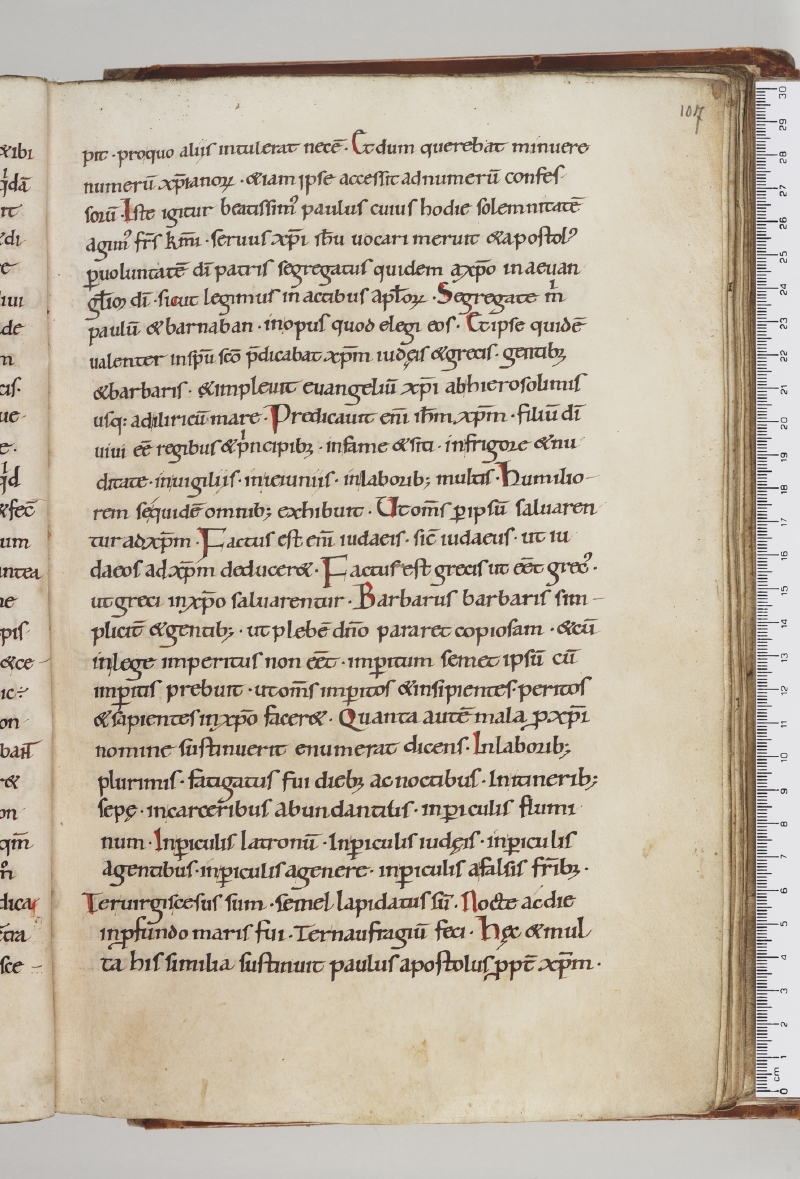 107
pit · proquo aliis intulerat necē · Et dum querebat minuere
numerū xp̄ianoꝝ · &iam ipse accessit adnumerū confes-
sorū · Iste igitur beatissim᷒ paulus cuius hodie solemnitatē
agim᷒ fr̄s km̄i · seruus xp̄i ih̄u uocari meruit &apostol᷒
ꝑuoluntatē dī patris segregatus quidem axp̄o inaeuan
gl̄io dī · sicut legimus in actibus apl̄oꝝ · Segregate m̄
paulū &barnaban · inopus quod elegi eos · Et ipse quidē
ualenter insp̄u sc̄o p̄dicabat xp̄m iudęis &grecis · gentibꝫ
&barbaris · &impleuit euangeliū xp̄i abhierosolimis
usq: adiliricū mare · Predicauit eni ih̄m xp̄m · filiū dī
uiui eē regibus &pͥncipibꝫ · infame &siti · infrigore &nu
ditate · inuigiliis · inieiuniis · inlaborib; multis · humilio-
rem sequidē omnib; exhibuit · Ut om̄s ꝑipsū saluaren
tur adxp̄m · Factus est eni iudaeis · sic̄ iudaeus · ut iu
daeos adxp̄m deducer& · Factus est grecis ut eēt grec᷒ ·
ut greci inxp̄o saluarentur · Barbarus barbaris sim-
plicit̄ &gentib; · ut plebē dn̄o pararet copiosam · &cū
inlege imperitus non eēt · imꝑitum semet ipsū cū
imꝑitis prebuit · ut om̄s imꝑitos &insipientes · peritos
&sapientes inxp̄o facer& · Quanta autē mala ꝓxp̄i
nomine sustinuerit enumerat dicens · Inlaborib;
plurimis · fatigatus fui dieb; ac noctibus · Initinerib;
sepę · incarceribus abundantius · inꝑiculis flumi
num · Inꝑiculis latronū · Inꝑiculis iudęis · inꝑiculis
agentibus · inꝑiculis agenere · inꝑiculis afalsis fr̄ibꝫ ·
Teruirgis cesus sum · semel lapidatus sū · Nocte ac die
inꝓfundo maris fui · Ternaufragiū feci · hęc &mul
ta his similia sustinuit paulus apostolus ꝓpt̄ xp̄m ·